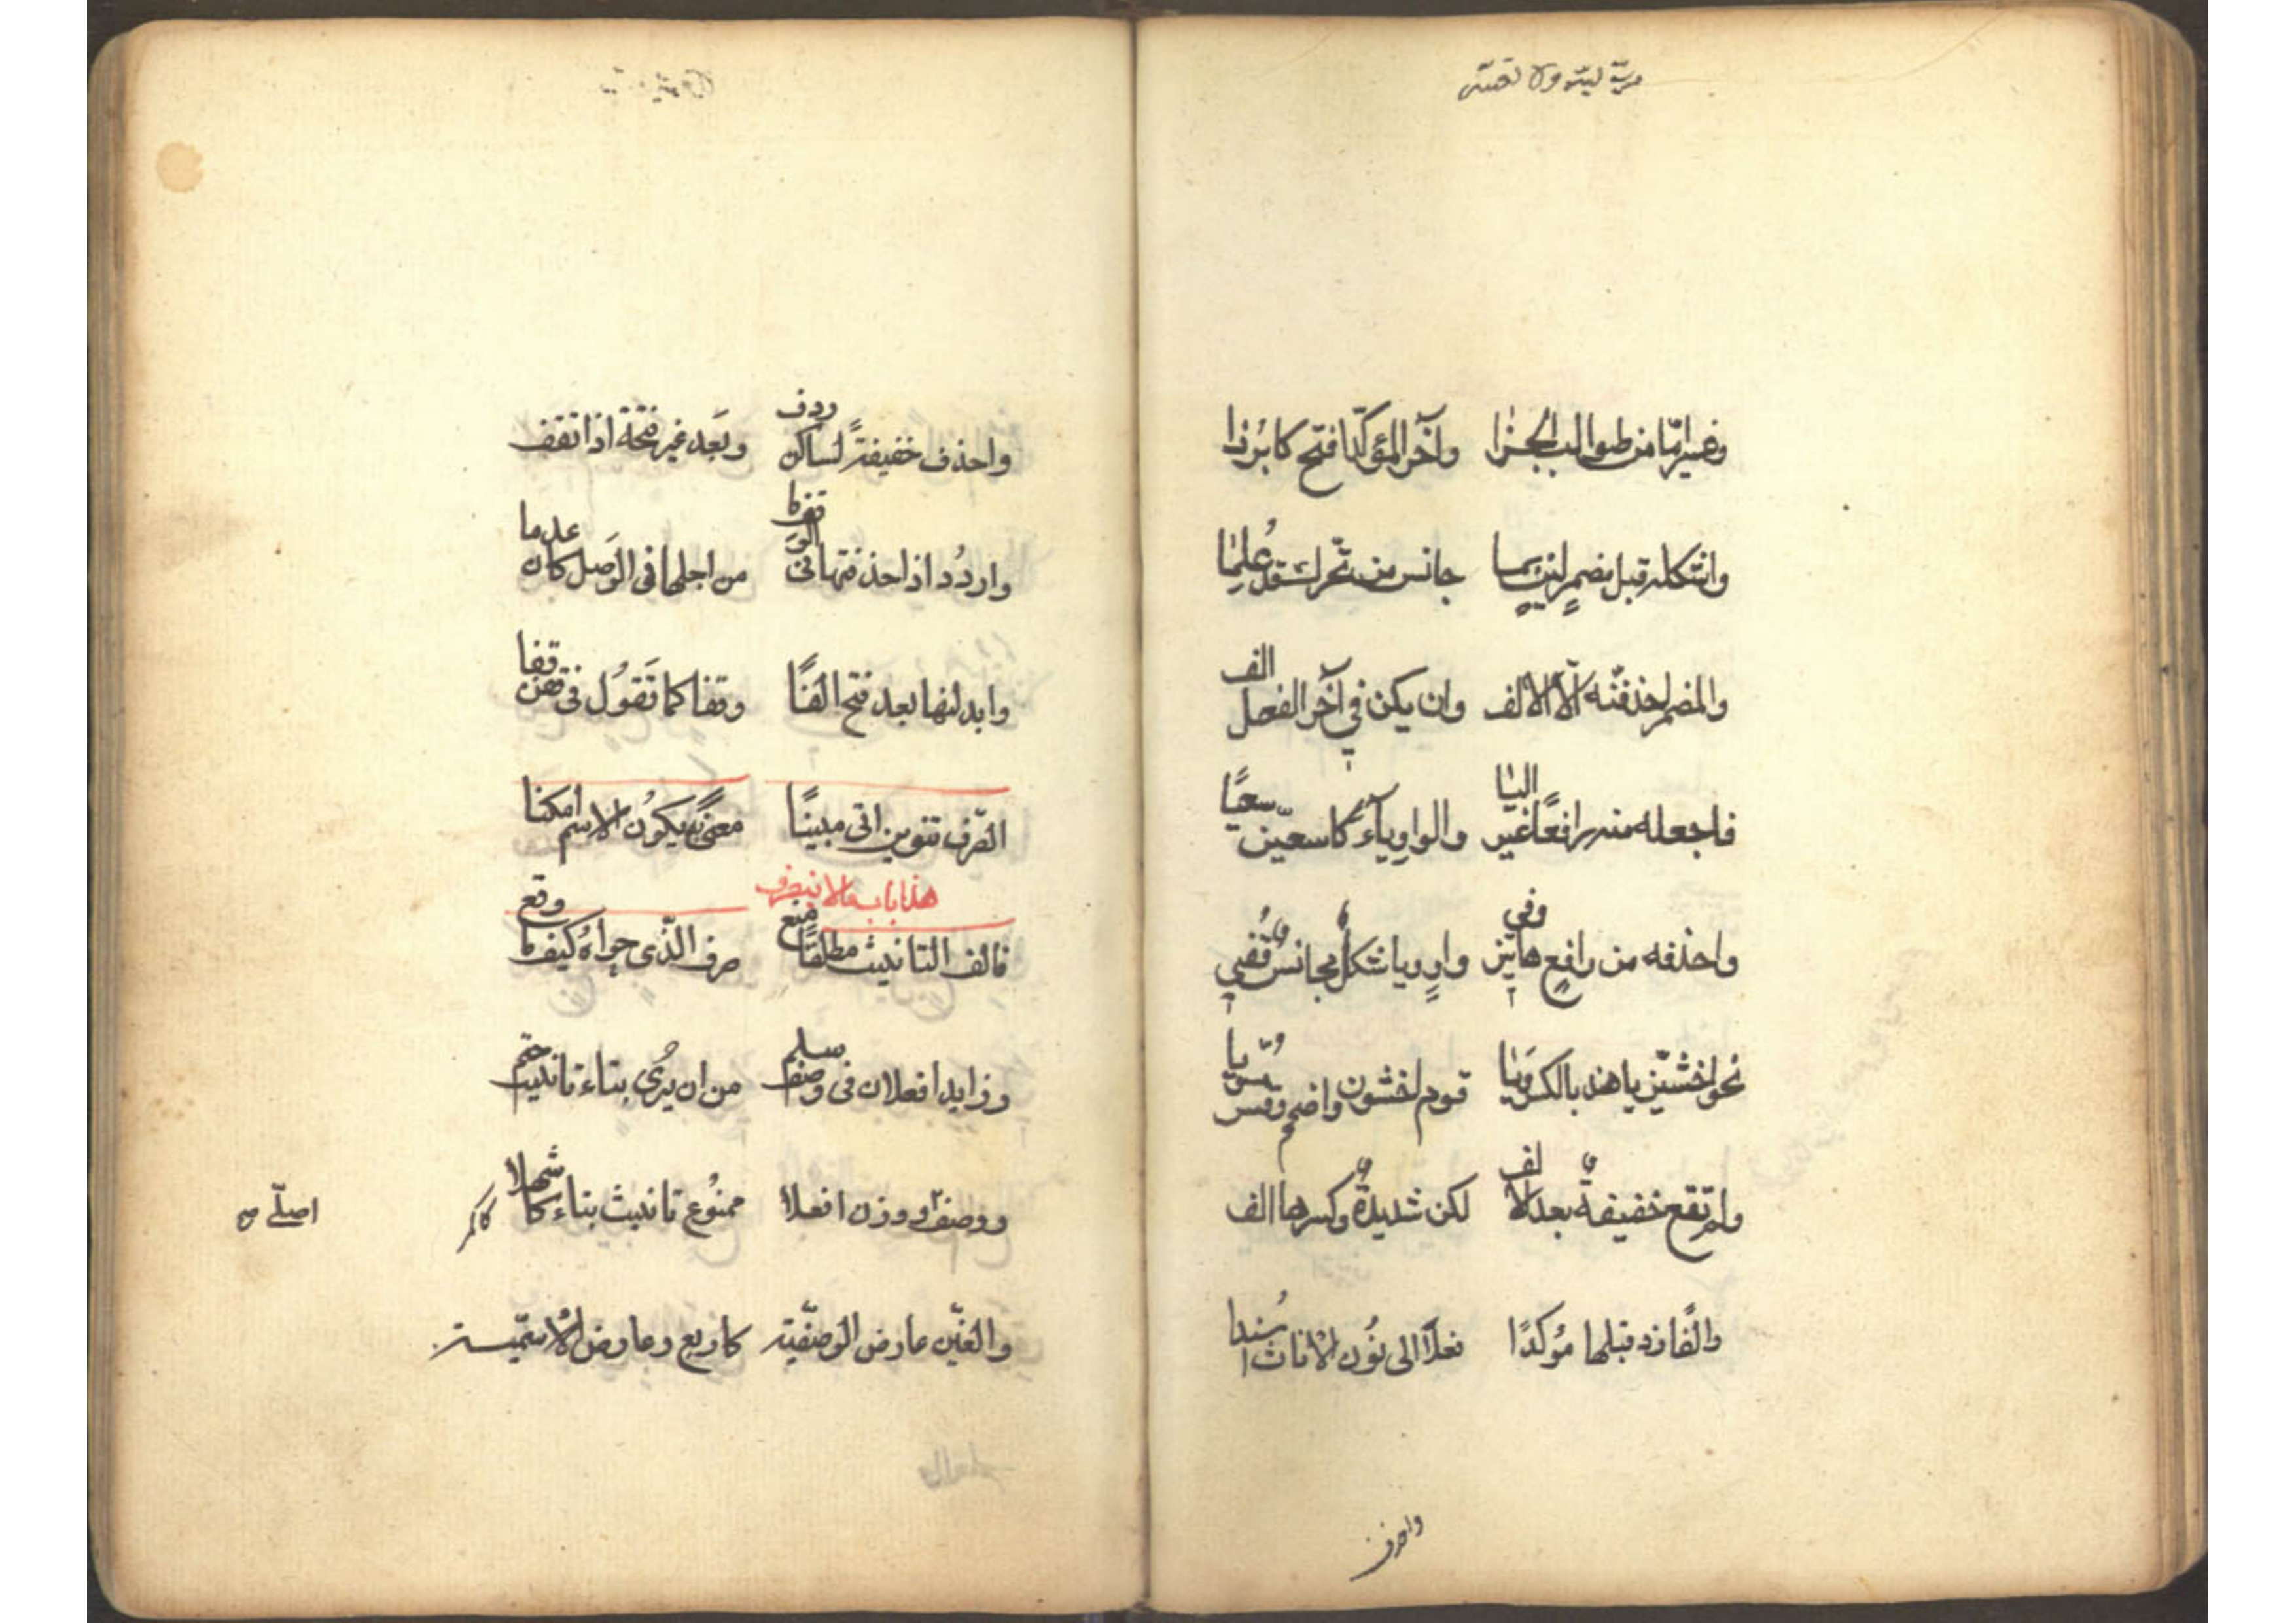 وغير امّا من طوالب الجزا وآخر المؤكّد افتح كابرُزا
واشكله قبل مضمرٍ لينٍ بما جانس من تحرّك قد عُلِمَا
والمضمر احذفنّه الّا الالف وان يكن في آخر الفعل الف
فاجعله منه رافعًا غير اليا والواو ياءً كاسعينّ سعيًا
واحذفه من رافع هاتين وفي واوٍ ويا شكلٌ مجانسٌ قُفي
نحو اخشيِن يا هند بالكسر ويَا قوم اخشون واضمم وقس مسوّيا
ولم تقع خفيفةٌ بعد الالف لكن شديدةٌ وكسرها الف
والفًا زد قبلها مُؤكدًا فعلًا الى نُون الاناث اسُندا
واحذف
واحذف خفيفةً لساكن ردف وبَعد غير فتحة اذا تقف
واردُد اذا حذفتها في الوقف ما من اجلها في الوَصل كان عدما
وابدلنها بعد فتح الفًا وقفا كما تَقوُل في قفن قفا
الصّرف تنوين اتى مبينًا معنًى به يكوُن الاسم امكنا
هذا باب مالا ينصرف
فالف التانيث مطلقًا منع صرف الّذي حواهُ كيف ما وقع
وزايدا فعلان في وصف سلم من ان يرُى بتاء تانيث ختم
ووصفٌ اصلّي ووزن افعلا ممنوُع تانيث بتاء كاشهلا
اصلّي صح
والغيّن عارض الوصفيّه كاربع وعارض الاسميّة